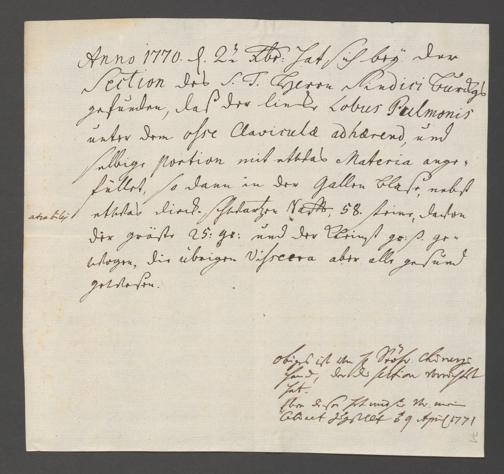 Anno 1770. d. 2ten Xbr: hat sich bey der
Section des S. T. Herrn Sindici
gefunden, daß der linke Lobus Pulmonis
unter dem osse Claviculæ adhærend, und
selbige Portion mit etwas Materia ange-
füllet, so dann in der Gallen blase, nebst
etwas dick schwartzen 58. steine, davon
der gröste 25: gr: und der kleinst gr: ge-
wogen, die übrigen Viscera aber alle gesund
gewesen.
atra bilis
obiges ist von H Chirurg
hand, der die section verrichtet
hat.
9 April 1771